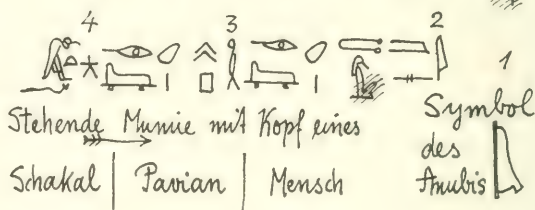 4 3 2 1
Stehende Mumie mit Kopf eines
Schakal | Pavian | Mensch
Symbol
des
Anubis